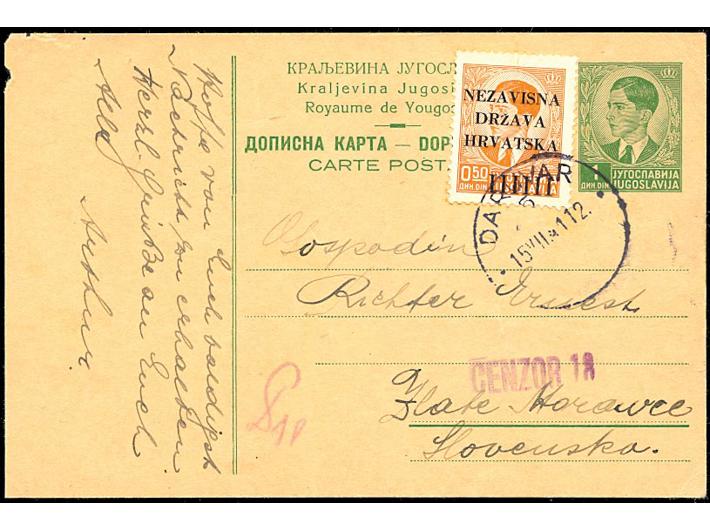 КРАЉЕВИНА ЈУГОСЛ
Kraljevina Jugosl
Royaume de Yougos
ДОПИСНА КАРТА — DOP
CARTE POST
NEZAVISNA
DRŽAVA
HRVATSKA
0.50
ДИН. DIN.
1
ДИН. DIN.
ЈУГОСЛАВИЈА
JUGOSLAVIJA
DAR JAR
15 VII 41 12.
Gospodin
Richter Ernest
CENZOR 18
Zlate Moravce
Slovensko.
Hoffe von Euch baldigst
Nachricht zu erhalten
Herzl. Grüße an Euch
Alle
Arthur.